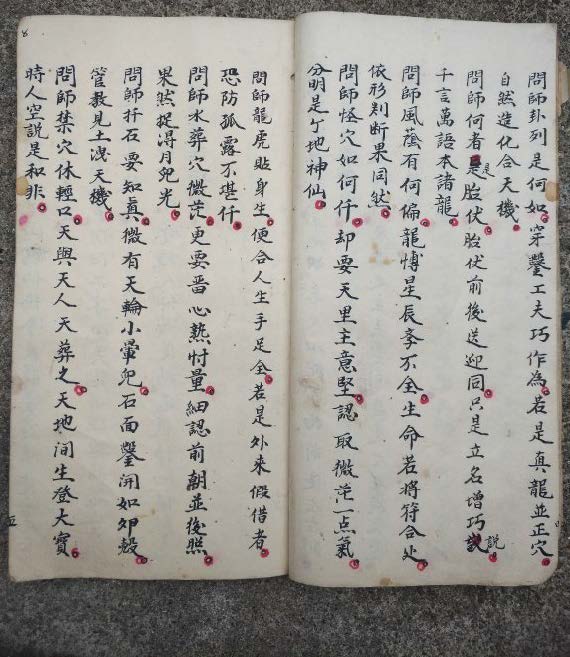 問師卦列是何如穿鑿工夫巧作為若是真龍並正穴
自然造化合天機
問師何者是胎伏胎伏前後送迎同只是立名增巧說
千言萬語本諸龍
問師風蔭有何偏龍愽星辰夆不全生命若將符合处
依形判断果同然
問師怪穴如何仟却要天里主意堅認取微茫一点氣
分明是个地神仙
問師龍虎貼身生便合人生手足全若是外来假借者
恐防孤露不堪仟
問師水葬穴微茫更要留心熱忖量細認前朝並後照
果然捉淂月兜光
問師扦石要知真微有天輪小暈兜石面鑿開如卵殼
管教見土洩天機
問師禁穴休輕口天與天人天葬之天地间生登大寳
時人空説是和非
8
五